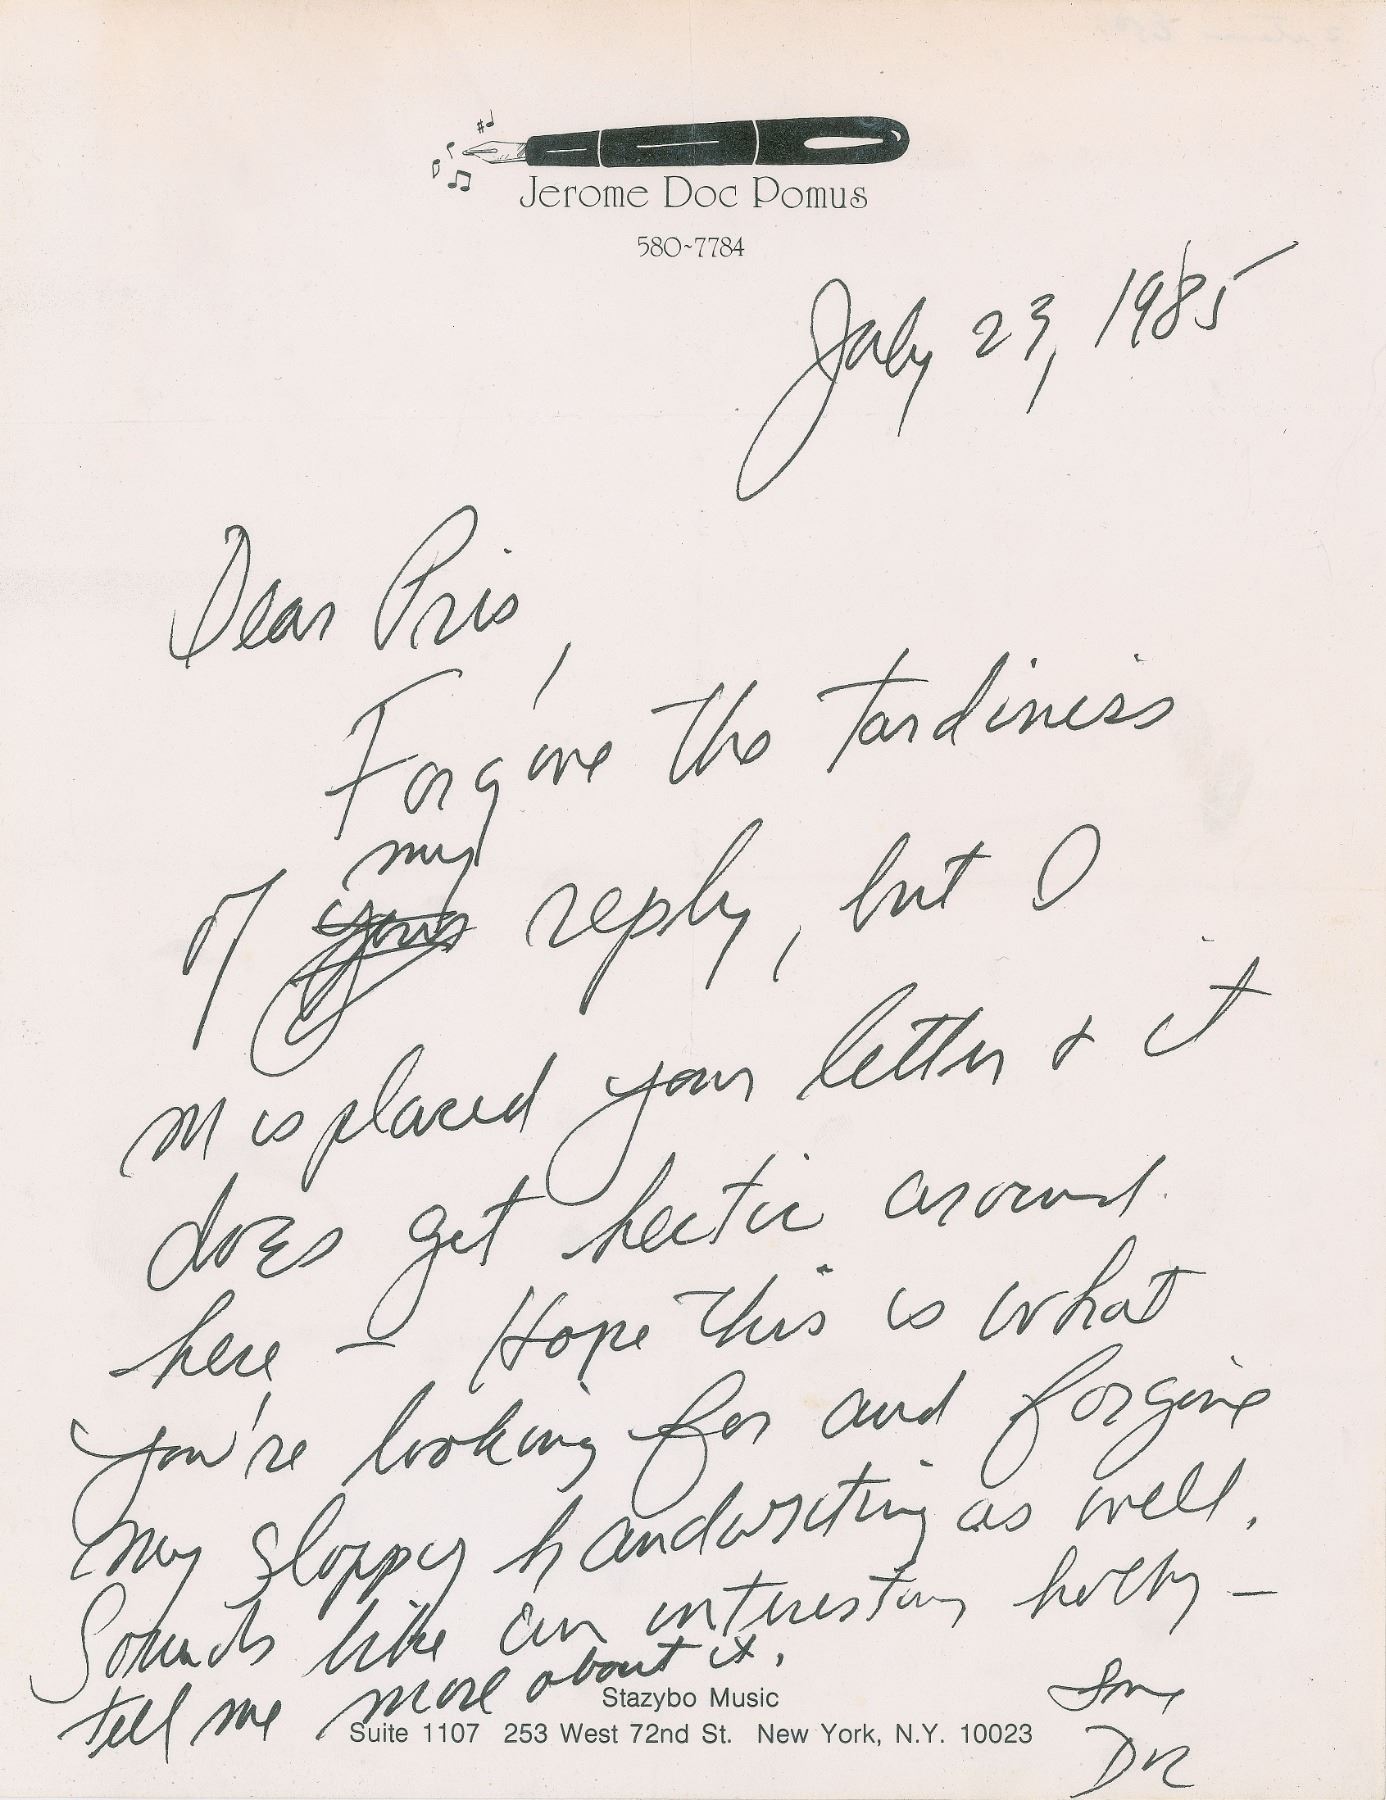 Jerome Doc Pomus
580-7784
July 23, 1985
Dear Pris,
Forgive the tardiness
my
of your reply, but I
misplaced your letter & it
does get hectic around
here - Hope this is what
you're looking for and forgive
my sloppy handwriting as well.
Sounds like an interesting hobby -
tell me more about it.
Stazybo Music
Suite 1107 253 West 72nd St. New York, N.Y. 10023
Love
Doc